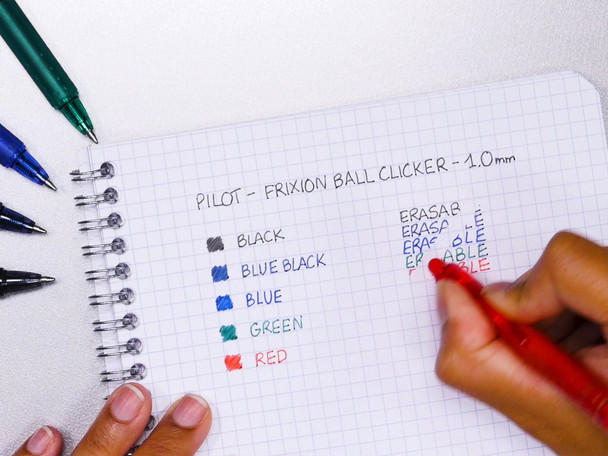 PILOT - FRIXION BALL CLICKER - 1.0mm
BLACK
BLUE BLACK
BLUE
GREEN
RED
ERASAB
ERASA E
ERA BLE
ER ABLE
BLE